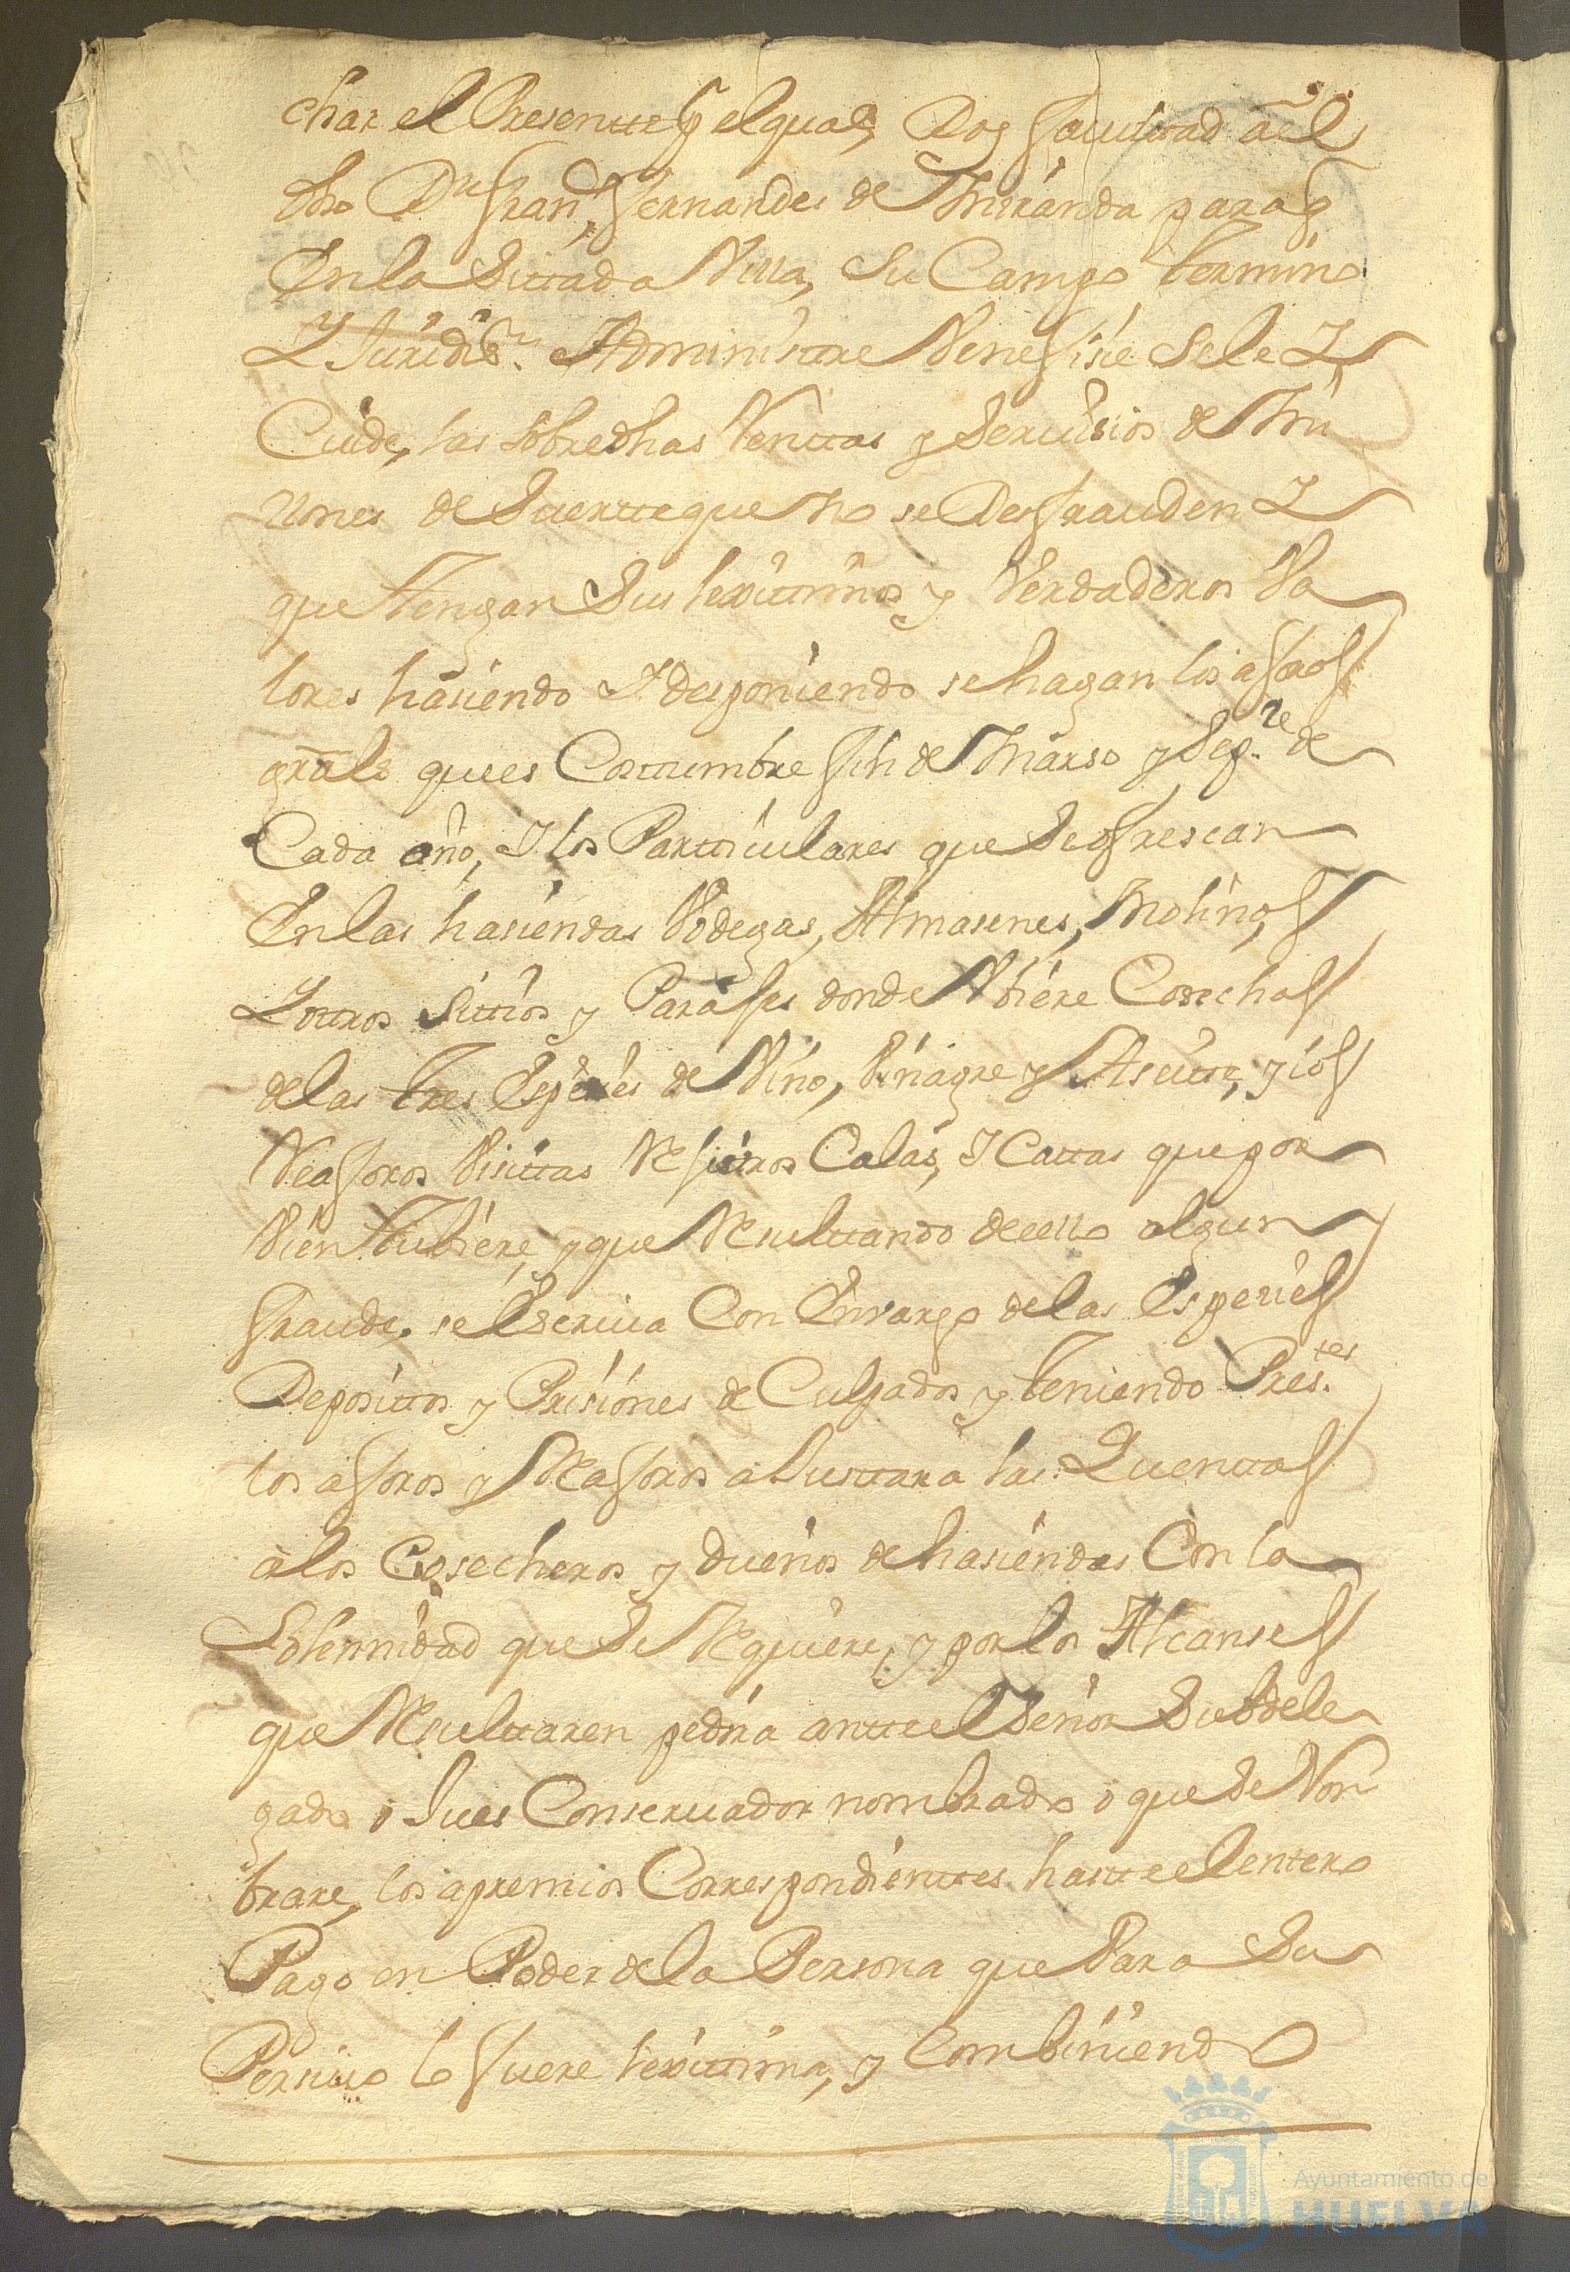 char el Presentte p.r el qual, Doy facultad a el
dho Dn Franco Fernandes de Miranda para q
En la Sittada Villa, su Campo termino
Y Juridisn. Administtre Venefisie Sele Y
Cuide, las sobredhas Renttas y Servisios de Mi
llones de Suertte que no se Desfrauden Y
que Tengan Sus lexittimos y Verdaderos Va
lores hasiendo Y desponiendo se hagan los aforos
grales que es Costtumbre fin de Marso y Sepre de
Cada año, Y los Partticulares que Se ofrescan
En las hasiendas Vodegas, Almasenes, Molinos
Y ottros Sittios y Parajes donde Vbiere Cosechas
de las tres Espesies de Vino, Vinagre y Aseitte, y los
Reaforos Visittas Resittros Calas, Y Cattas que por
Vien Tubiere, y que Resulttando de ello algun
fraude, se Escriva Con Envargo de las Espesies
Deposittos y Prisiones de Culpados y Teniendo Prestes
los aforos y Reaforos a Justtara las Quenttas
a los Cosecheros y dueños de hasiendas Con la
Solemnidad que Se Requiere, y por los Alcanses
que Resulttaren pedira antte el Señor Subdele
gado o Jues Conservador nombrado o que Se Non
brare, los apremios Correspondienttes hastte el entero
Pago en Poder de la Persona que Para Su
Persivo lo fuere lexittima, y Combiniendo
Ayuntamiento de
HUELVA